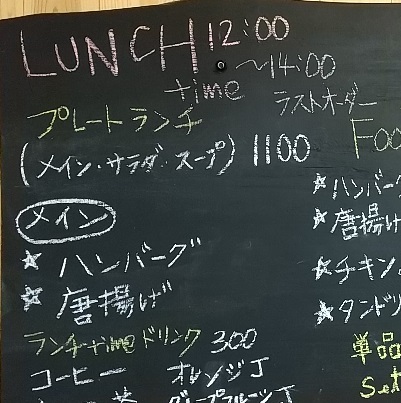 LUNCH 12:00
time ~14:00
ラストオーダー
プレートランチ
(メイン・サラダ・スープ) 1100
メイン
★ ハンバーグ
★ 唐揚げ
ランチtimeドリンク 300
コーヒー オレンジJ
グレープフルーツJ
Foo
★ハンバーグ
★唐揚げ
★チキン
★タンドリ
単品
Set